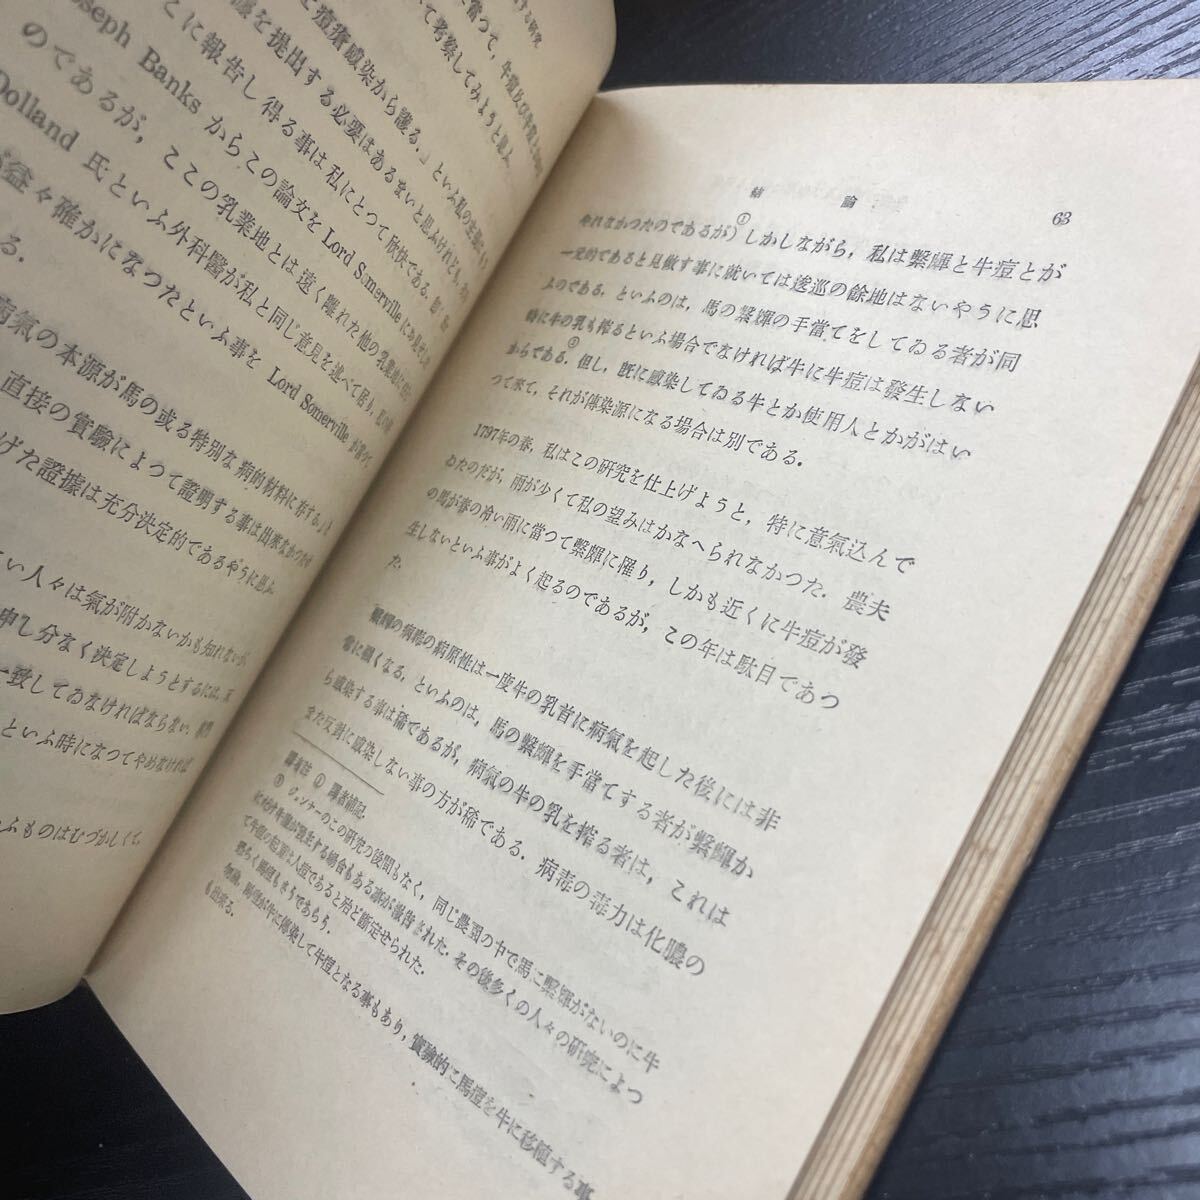 する研究
当つて、牛痘及び
て考察してみようと思ふ
て痘瘡感染から護る。」といふ私の主張に
議を提出する必要はあるまいと思ふけれども、
とに報告し得る事は私にとつて欣快である。
Joseph Banks からこの論文を Lord Somerville にお見せ
のであるが、ここの乳業地とは遠く離れた他の乳業地に
Dolland 氏といふ外科醫が私と同じ意見を述べて居り、
が益々確かになつたといふ事を Lord Somerville が
る。
病氣の本源が馬の或る特別な病的材料に存する。」
直接の實驗によつて證明する事は出來なかつたが
げた證據は充分決定的であるやうに思ふ
い人々は氣が附かないかも知れないが、
申し分なく決定しようとするには、
一致してゐなければならない。
といふ時になつてやめなければ
ふものはむづかしくて、
結論 63
かしながら、私は繋輝と牛痘とが
一元的であると見做す事に就いては逡巡の餘地はないやうに思
ふのである。といふのは、馬の繋輝の手當てをしてゐる者が同
時に牛の乳も搾るといふ場合でなければ牛に牛痘は發生しない
からである。② 但し、既に感染してゐる牛とか使用人とかがはい
つて來て、それが傳染源になる場合は別である。
1797年の春、私はこの研究を仕上げようと、特に意氣込んで
ゐたのだが、雨が少くて私の望みはかなへられなかつた。農夫
の馬が春の冷い雨に當つて繋輝に罹り、しかも近くに牛痘が發
生しないといふ事がよく起るのであるが、この年は駄目であつ
た。
繋輝の病毒の病原性は一度牛の乳首に病氣を起した後には非
常に强くなる。といふのは、馬の繋輝を手當てする者が繋輝か
ら感染する事は稀であるが、病氣の牛の乳を搾る者は、これは
また反對に感染しない事の方が稀である。病毒の毒力は化膿の
譯者註 ① 譯者補記。
② ジェンナーのこの研究の後間もなく、同じ農園の中で馬に繋輝がないのに牛
に牛痘が發生する場合もある事が報告された。その後多くの人々の研究によつ
て牛痘の起原は人痘であると殆ど斷定せられた。
恐らく馬痘もさうであらう。
勿論、馬痘が牛に傳染して牛痘となる事もあり、實驗的に馬痘を牛に移植する事
も出來る。